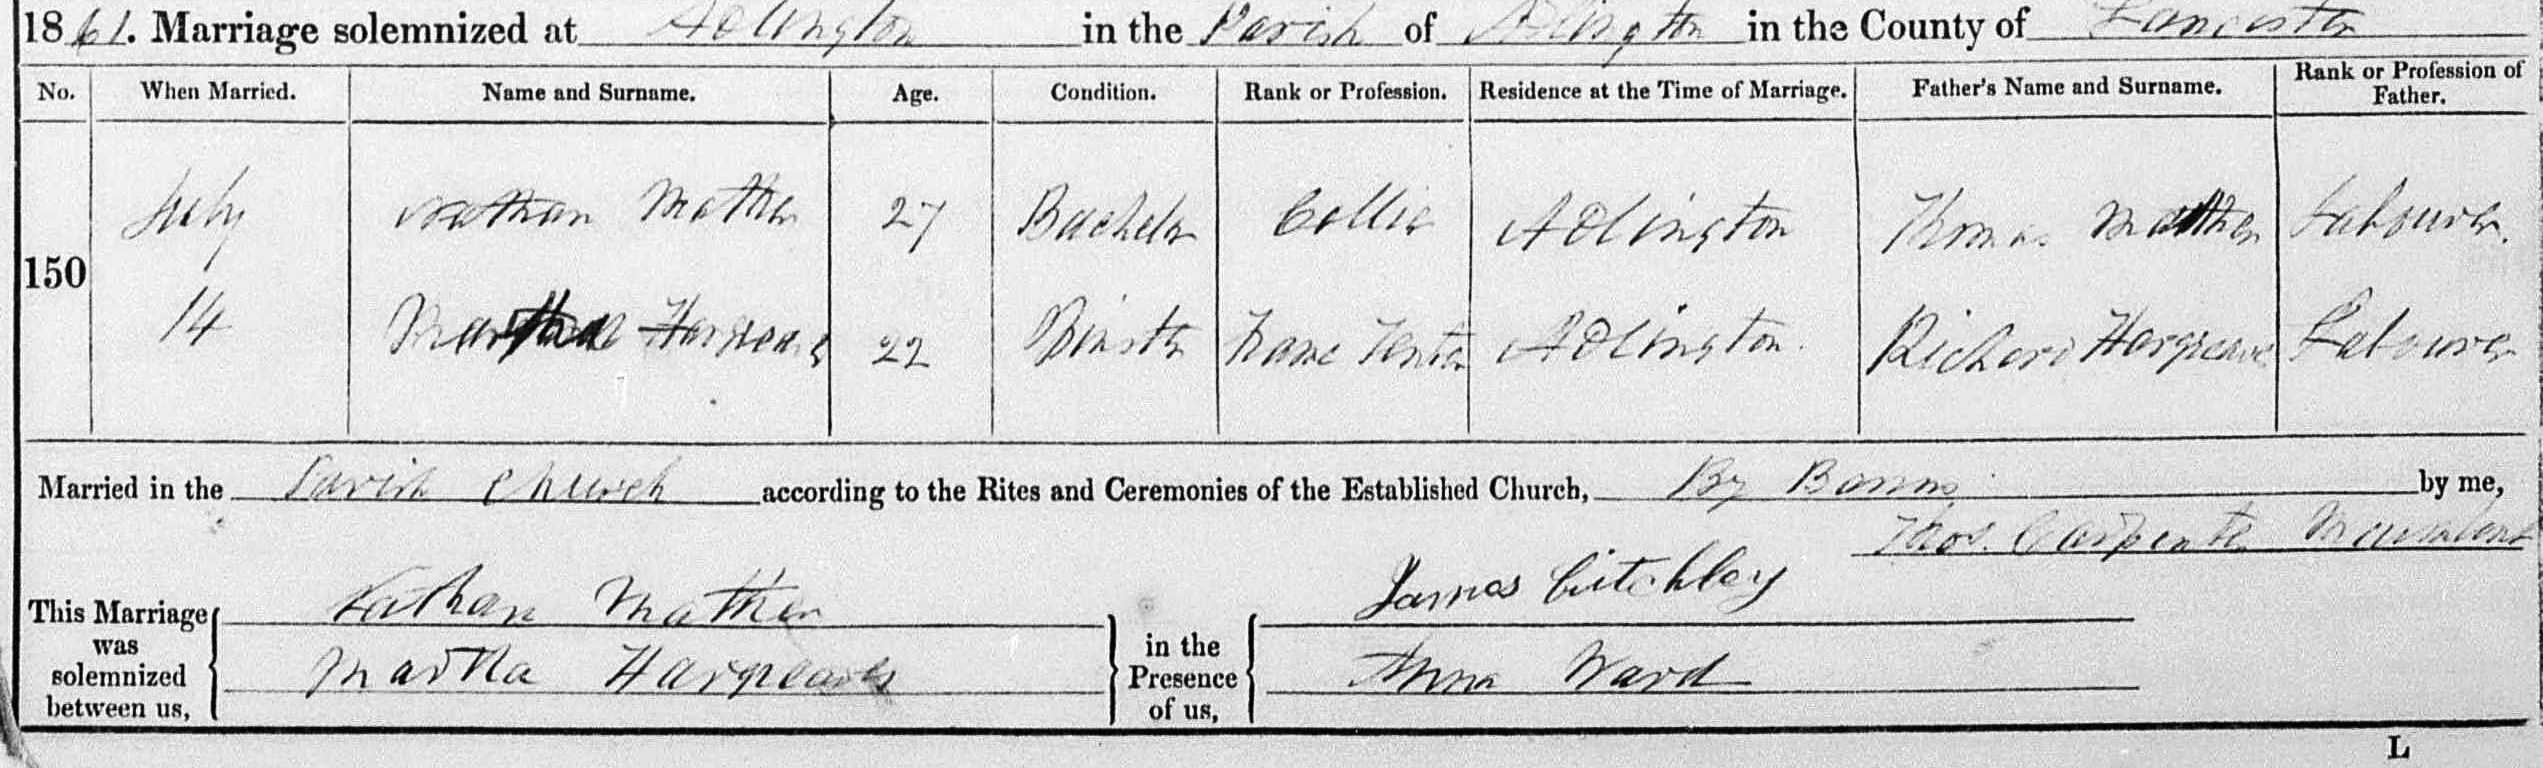 1861. Marriage solemnized at Adlington in the Parish of Adlington in the County of Lancaster
No. When Married. Name and Surname. Age. Condition. Rank or Profession. Residence at the Time of Marriage. Father's Name and Surname. Rank or Profession of Father.
July Nathan Mather 27 Bachelor Collier Adlington Thomas Mather Labourer.
150
14 Martha Hargreaves 22 Spinster Frame Tenter Adlington. Richard Hargreaves Labourer
Married in the Parish Church according to the Rites and Ceremonies of the Established Church, By Banns by me,
Thos. Carpenter Incumbent
This Marriage was solemnized between us, Nathan Mather in the Presence of us, James Critchley
Martha Hargreaves Anna Ward
L